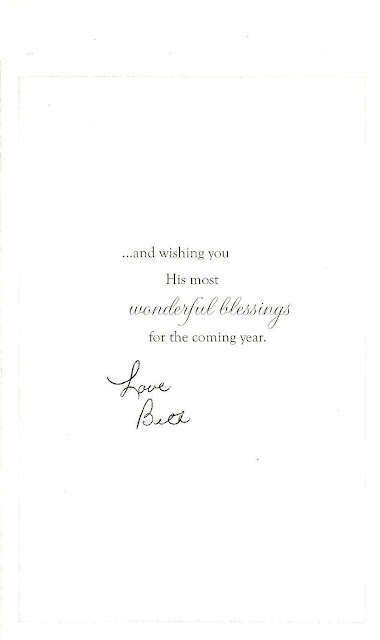 ...and wishing you
His most
wonderful blessings
for the coming year.
Love
Beth